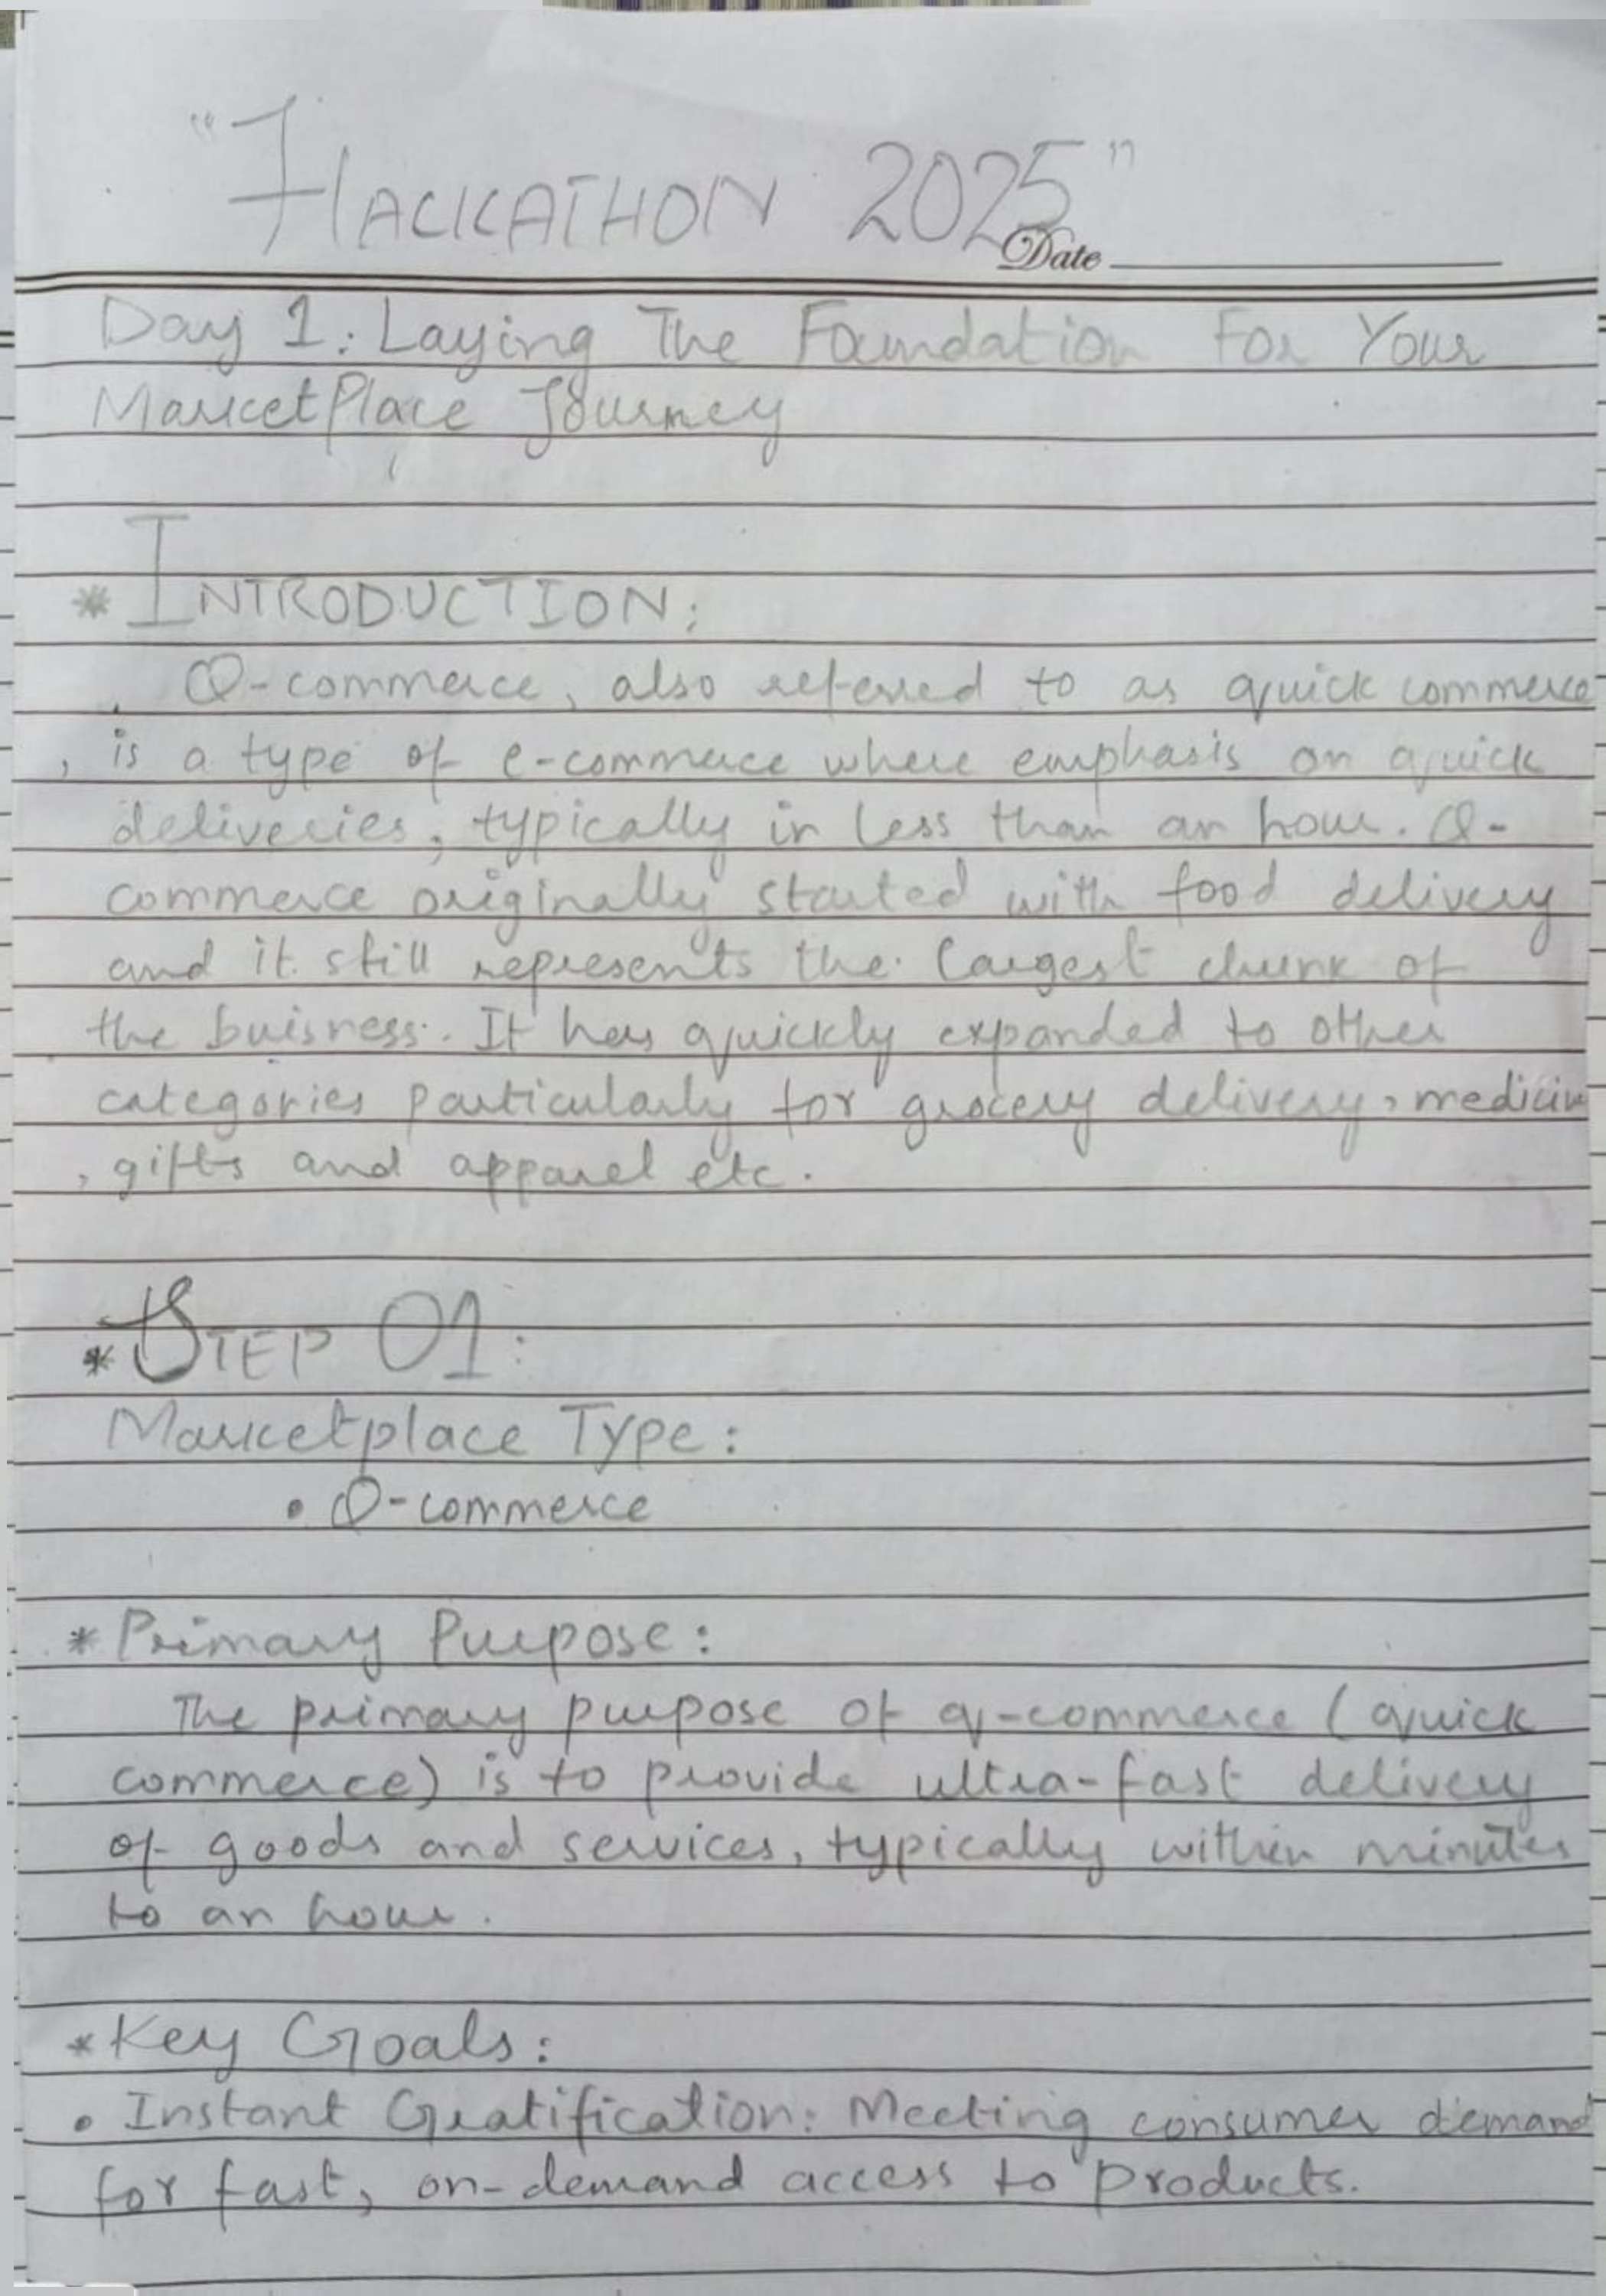 "HACKATHON 2025"
Date
Day 1: Laying The Foundation For Your
MarketPlace Journey
* INTRODUCTION:
Q-commerce, also referred to as quick commerce
, is a type of e-commerce where emphasis on quick
deliveries, typically in less than an hour. Q-
commerce originally started with food delivery
and it still represents the largest chunk of
the buisness. It has quickly expanded to other
categories particularly for grocery delivery, medicin
, gifts and apparel etc.
* STEP 01:
Marketplace Type:
• Q-commerce
* Primary Purpose:
The primary purpose of q-commerce (quick
commerce) is to provide ultra-fast delivery
of goods and services, typically within minutes
to an hour.
* Key Goals:
• Instant Gratification: Meeting consumer demand
for fast, on-demand access to products.